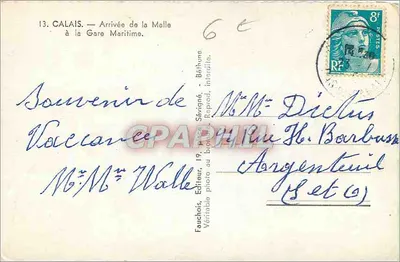 13. CALAIS. — Arrivée de la Malle
à la Gare Maritime.
6 €
8F
POSTES
RF
Souvenir de
Vacances
Mr. Mme Walle
Fauchois, Editeur, 19, Sévigné, - Béthune
Véritable photo au Reprod. interdite.
CPARAMA
Mr Mme Dictus
rue H. Barbusse
Argenteuil
(S et O)